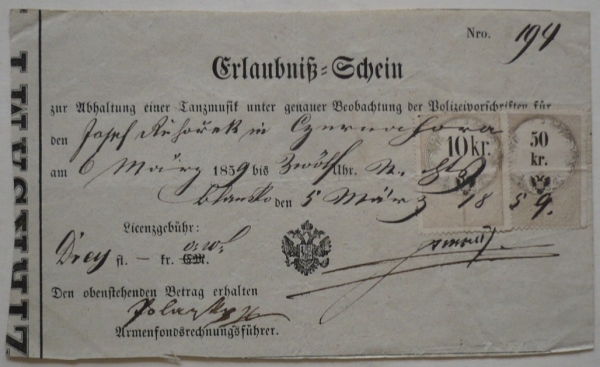 Nro. 194
Erlaubniß-Schein
zur Abhaltung einer Tanzmusik unter genauer Beobachtung der Polizeivorschriften für
den Josef in Czernahora
am 6 März 1859 bis Zwölf Uhr.
10 kr.
50 kr.
Blansko den 5 März 1859.
Licenzgebühr:
ö. W.
Drey fl. — kr. C.M.
Den obenstehenden Betrag erhalten
Armenfondsrechnungsführer.